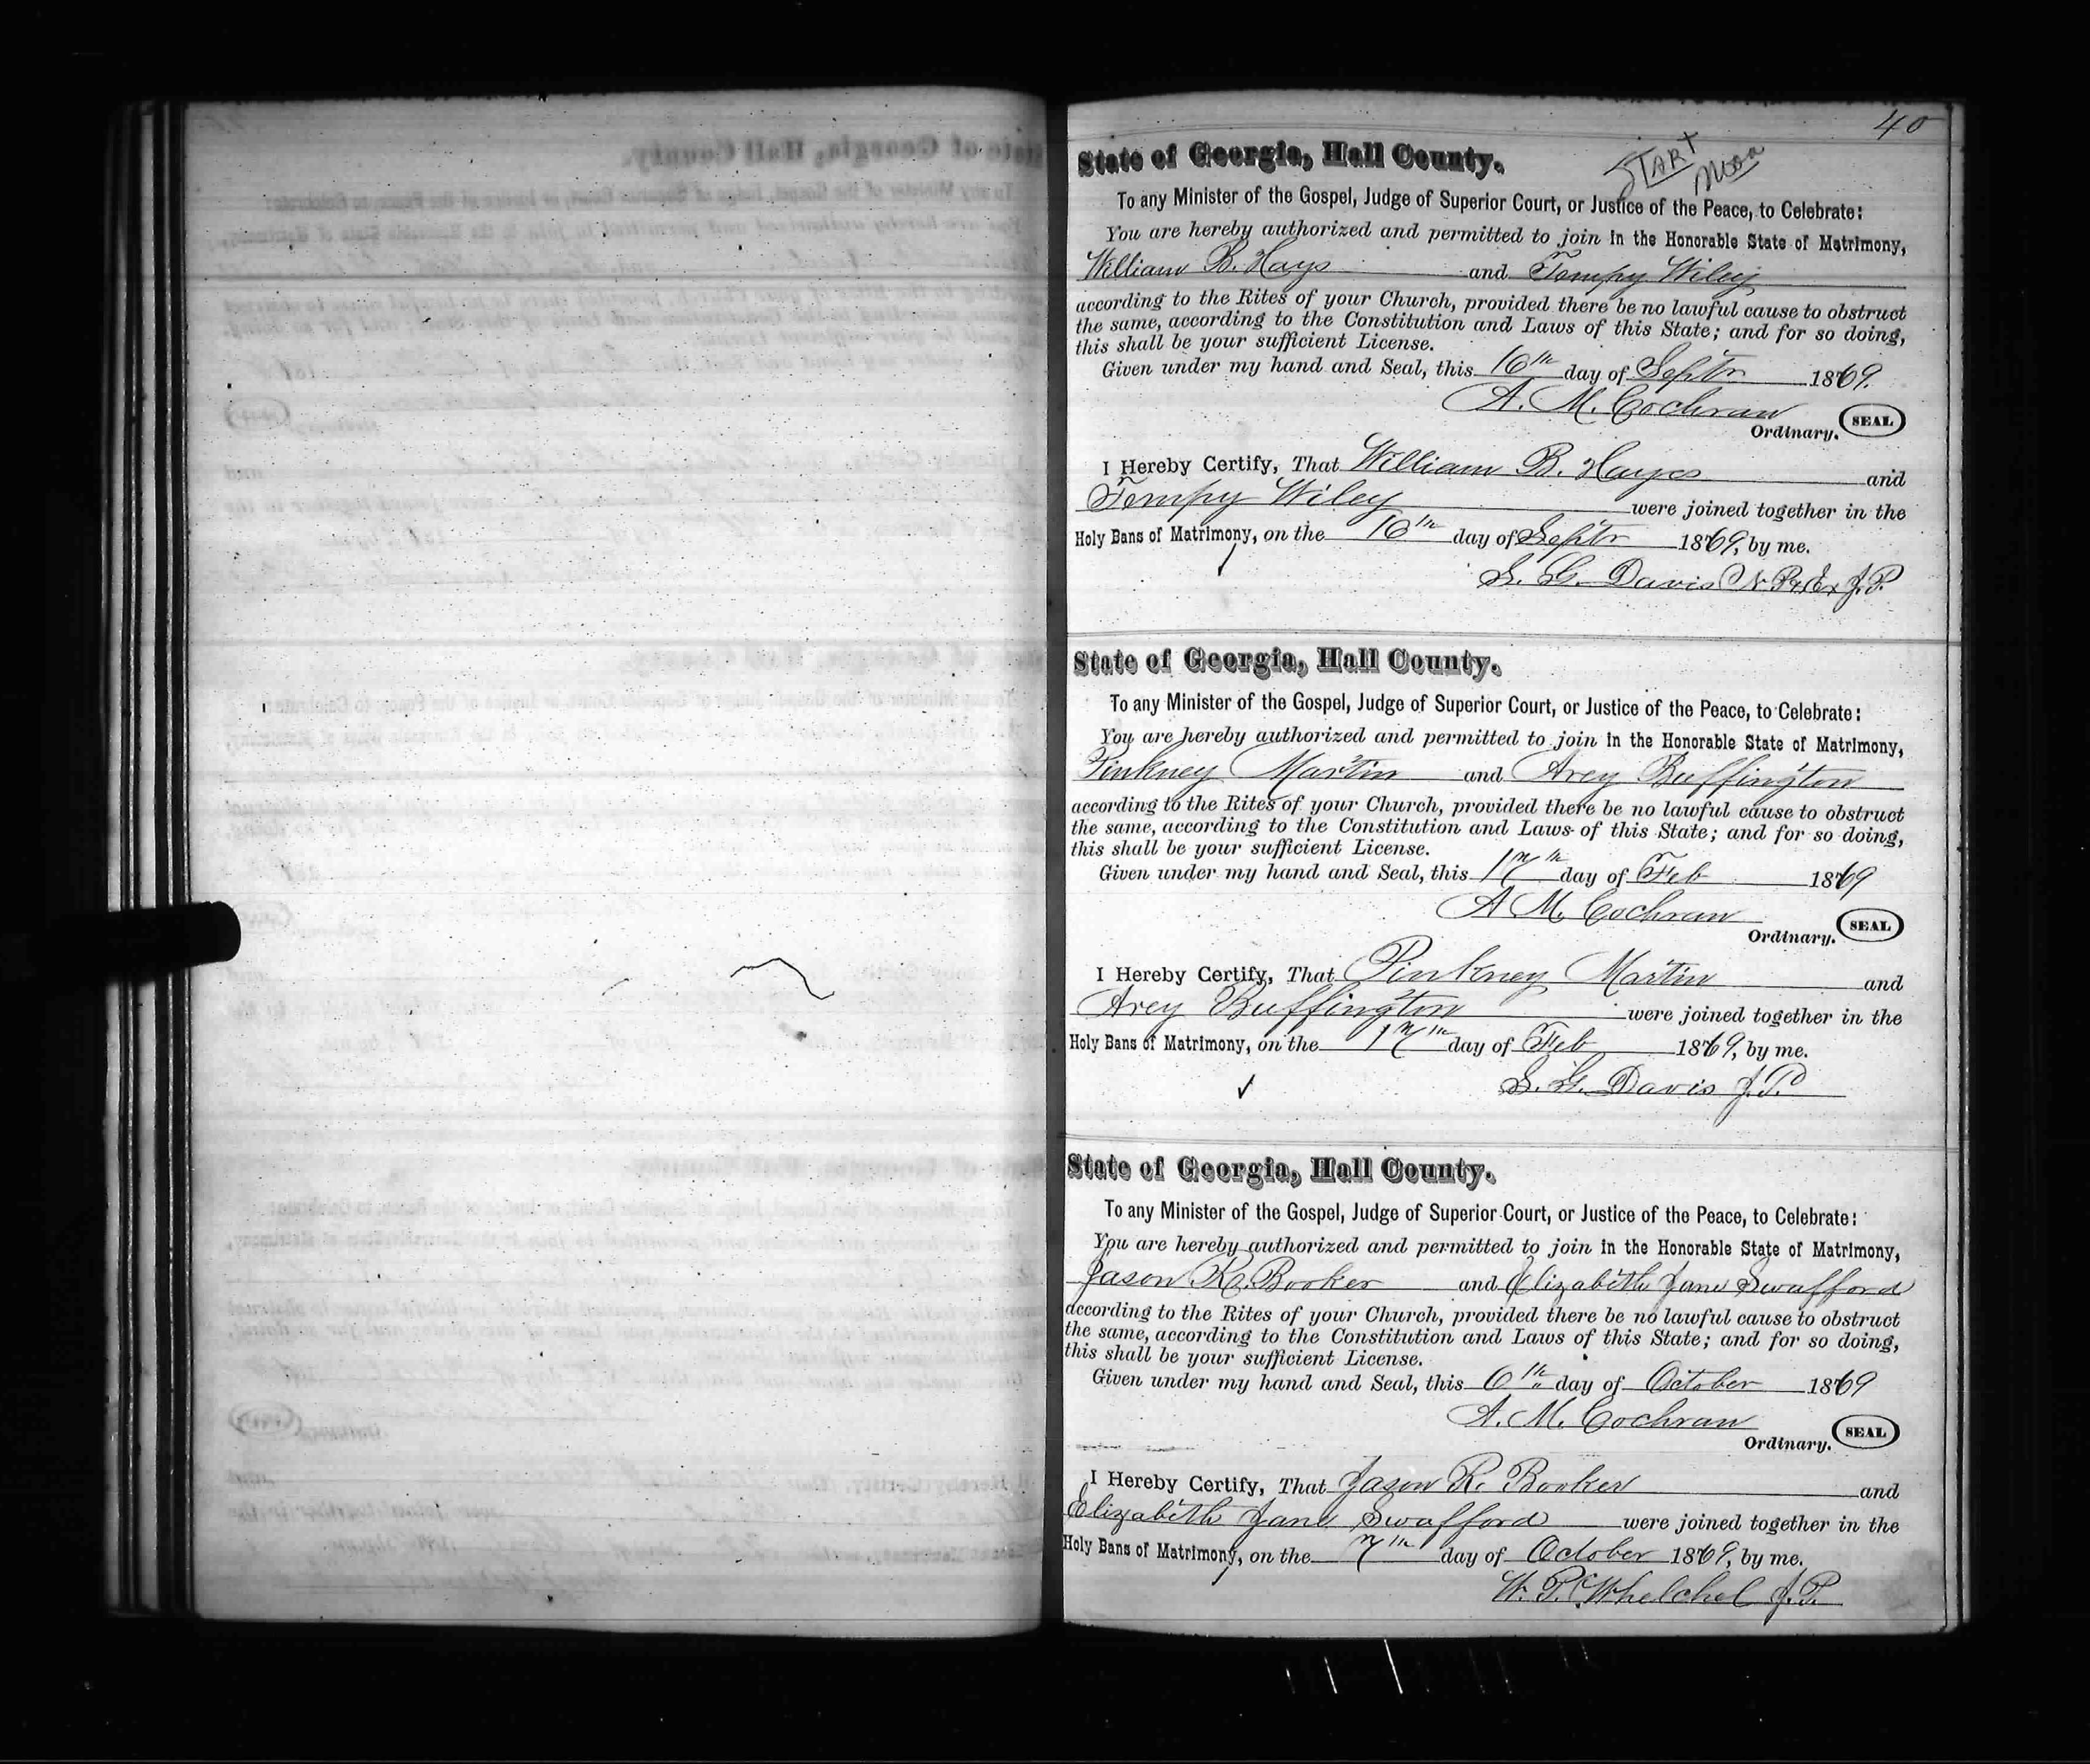 40
START
State of Georgia, Hall County.
To any Minister of the Gospel, Judge of Superior Court, or Justice of the Peace, to Celebrate:
You are hereby authorized and permitted to join in the Honorable State of Matrimony,
William B. Hays and Tempy Wiley
according to the Rites of your Church, provided there be no lawful cause to obstruct
the same, according to the Constitution and Laws of this State; and for so doing,
this shall be your sufficient License.
Given under my hand and Seal, this 16th day of Septr 1869.
A. M. Cochran
Ordinary. SEAL
I Hereby Certify, That William B. Hayes and
Tempy Wiley were joined together in the
Holy Bans of Matrimony, on the 16th day of Septr 1869, by me.
S. G. Davis N. P. & Ex J. P.
State of Georgia, Hall County.
To any Minister of the Gospel, Judge of Superior Court, or Justice of the Peace, to Celebrate:
You are hereby authorized and permitted to join in the Honorable State of Matrimony,
Pinkney Martin and Arey Buffington
according to the Rites of your Church, provided there be no lawful cause to obstruct
the same, according to the Constitution and Laws of this State; and for so doing,
this shall be your sufficient License.
Given under my hand and Seal, this 17th day of Feb 1869
A M. Cochran
Ordinary. SEAL
I Hereby Certify, That Pinkney Martin and
Arey Buffington were joined together in the
Holy Bans of Matrimony, on the 17th day of Feb 1869, by me.
S. G. Davis J. P.
State of Georgia, Hall County.
To any Minister of the Gospel, Judge of Superior Court, or Justice of the Peace, to Celebrate:
You are hereby authorized and permitted to join in the Honorable State of Matrimony,
Jason R. Booker and Elizabeth Jane Swafford
according to the Rites of your Church, provided there be no lawful cause to obstruct
the same, according to the Constitution and Laws of this State; and for so doing,
this shall be your sufficient License.
Given under my hand and Seal, this 6th day of October 1869
A. M. Cochran
Ordinary. SEAL
I Hereby Certify, That Jason R. Booker and
Elizabeth Jane Swafford were joined together in the
Holy Bans of Matrimony, on the 7th day of October 1869, by me.
W. P. Whelchel J. P.